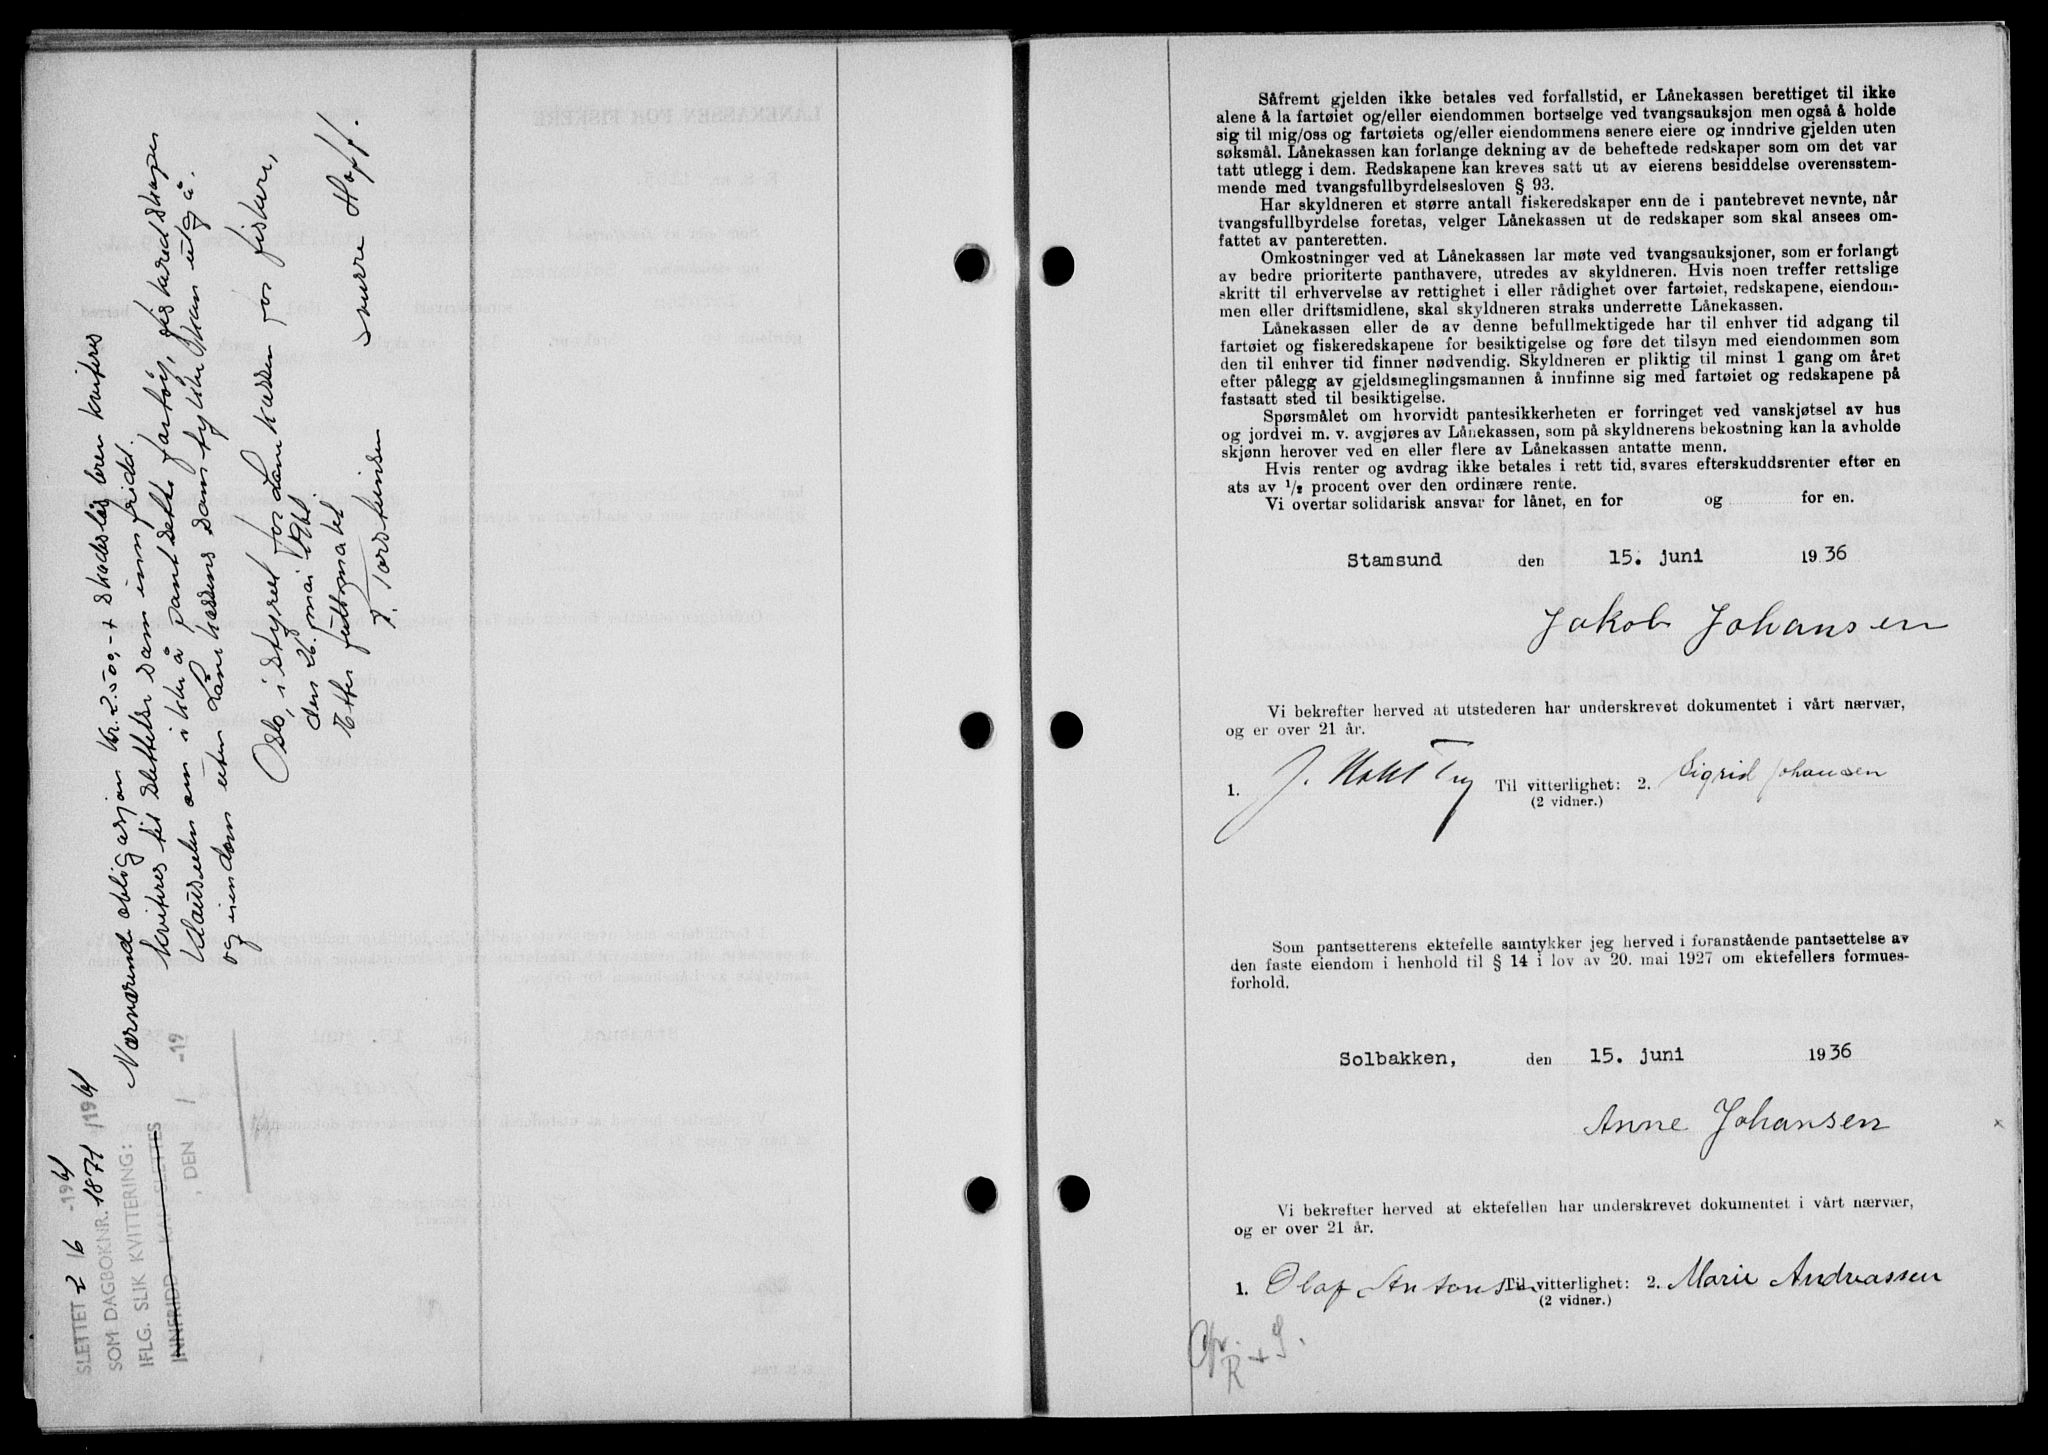 SLETTET 2/6 -1961
SOM DAGBOKNR. 1871/1961
IFLG. SLIK KVITTERING:
INNFRIDD KAN SLETTES
, DEN / -19
Nærværende obligasjon kr. 2.500,- + skadesløsbrev kvitteres
kvitteres til slettelse som innfridd.
Klausulen om ikke å pantsette fartøy, fiskeredskaper
og eiendom uten Lånekassens samtykke kan utgå.
Oslo, i styret for Lånekassen for fiskere,
den 26. mai 1961
Etter fullmakt
T. Torsteinsen Snurre Hoff.
Såfremt gjelden ikke betales ved forfallstid, er Lånekassen berettiget til ikke
alene å la fartøiet og/eller eiendommen bortselge ved tvangsauksjon men også å holde
sig til mig/oss og fartøiets og/eller eiendommens senere eiere og inndrive gjelden uten
søksmål. Lånekassen kan forlange dekning av de beheftede redskaper som om det var
tatt utlegg i dem. Redskapene kan kreves satt ut av eierens besiddelse overensstem-
mende med tvangsfullbyrdelsesloven § 93.
Har skyldneren et større antall fiskeredskaper enn de i pantebrevet nevnte, når
tvangsfullbyrdelse foretas, velger Lånekassen ut de redskaper som skal ansees om-
fattet av panteretten.
Omkostninger ved at Lånekassen lar møte ved tvangsauksjoner, som er forlangt
av bedre prioriterte panthavere, utredes av skyldneren. Hvis noen treffer rettslige
skritt til erhvervelse av rettighet i eller rådighet over fartøiet, redskapene, eiendom-
men eller driftsmidlene, skal skyldneren straks underrette Lånekassen.
Lånekassen eller de av denne befullmektigede har til enhver tid adgang til
fartøiet og fiskeredskapene for besiktigelse og føre det tilsyn med eiendommen som
den til enhver tid finner nødvendig. Skyldneren er pliktig til minst 1 gang om året
efter pålegg av gjeldsmeglingsmannen å innfinne sig med fartøiet og redskapene på
fastsatt sted til besiktigelse.
Spørsmålet om hvorvidt pantesikkerheten er forringet ved vanskjøtsel av hus
og jordvei m. v. avgjøres av Lånekassen, som på skyldnerens bekostning kan la avholde
skjønn herover ved en eller flere av Lånekassen antatte menn.
Hvis renter og avdrag ikke betales i rett tid, svares efterskuddsrenter efter en
sats av 1/2 procent over den ordinære rente.
Vi overtar solidarisk ansvar for lånet, en for og for en.
Stamsund den 15. juni 1936
Jakob Johansen
Vi bekrefter herved at utstederen har underskrevet dokumentet i vårt nærvær,
og er over 21 år.
1. J. Til vitterlighet: 2. Sigrid Johansen
(2 vidner.)
Som pantsetterens ektefelle samtykker jeg herved i foranstående pantsettelse av
den faste eiendom i henhold til § 14 i lov av 20. mai 1927 om ektefellers formues-
forhold.
Solbakken, den 15. juni 1936
Anne Johansen
Vi bekrefter herved at ektefellen har underskrevet dokumentet i vårt nærvær,
og er over 21 år.
1. Olaf Antonsen Til vitterlighet: 2. Marie Andreassen
(2 vidner.)